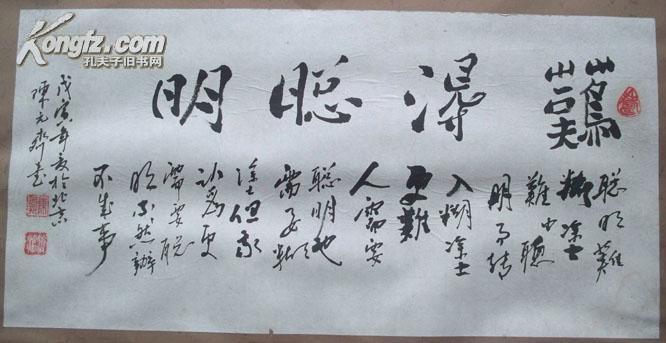 Kongfz.com
孔夫子旧书网
得聪明
聪明難
糊塗
難由聰
明而转
入糊塗
更難
人需要
聪明也
需要糊
塗但我
以為更
需要聪
明不然辦
不成事
戊寅年夏於北京
陳元